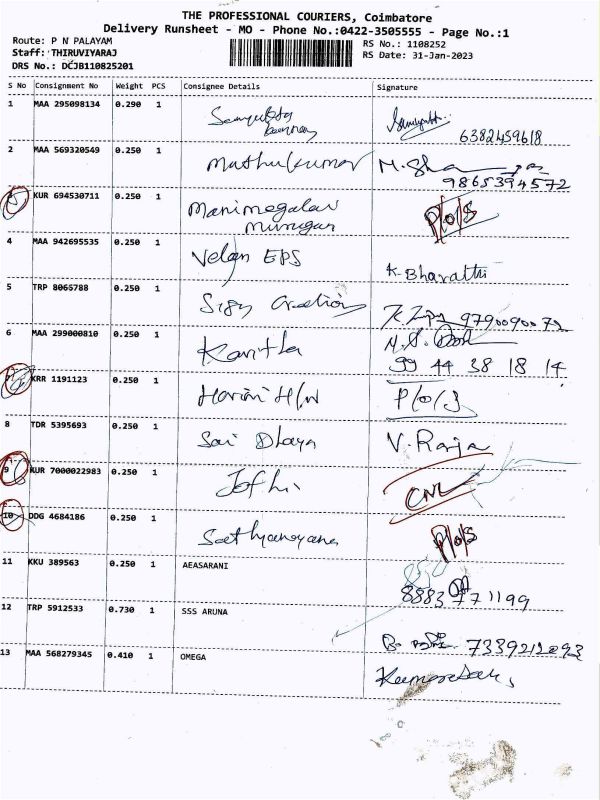 THE PROFESSIONAL COURIERS, Coimbatore
Delivery Runsheet - MO - Phone No.:0422-3505555 - Page No.:1
Route: P N PALAYAM
RS No.: 1108252
Staff: THIRUVIYARAJ
RS Date: 31-Jan-2023
DRS No.: DCJB110825201
S No Consignment No Weight PCS Consignee Details Signature
1 MAA 295098134 0.290 1
6382459618
2 MAA 569320549 0.250 1 Muthukumar
9865394572
3 KUR 694530711 0.250 1 Manimegalai P/o/s
Murugan
4 MAA 942695535 0.250 1 Velan EPS K. Bharathi
5 TRP 8065788 0.250 1 Creations 9790090072
6 MAA 299000810 0.250 1 Kavitha
99 44 38 18 14
7 KRR 1191123 0.250 1 Harini H/W P/o/s
8 TDR 5395693 0.250 1 Sai Dhaya V. Raja
9 KUR 7000022983 0.250 1 Jothi CNL
10 DDG 4684186 0.250 1 Sathyanarayana P/o/s
11 KKU 389563 0.250 1 AEASARANI
8883771199
12 TRP 5912533 0.730 1 SSS ARUNA
7339212093
13 MAA 568279345 0.410 1 OMEGA